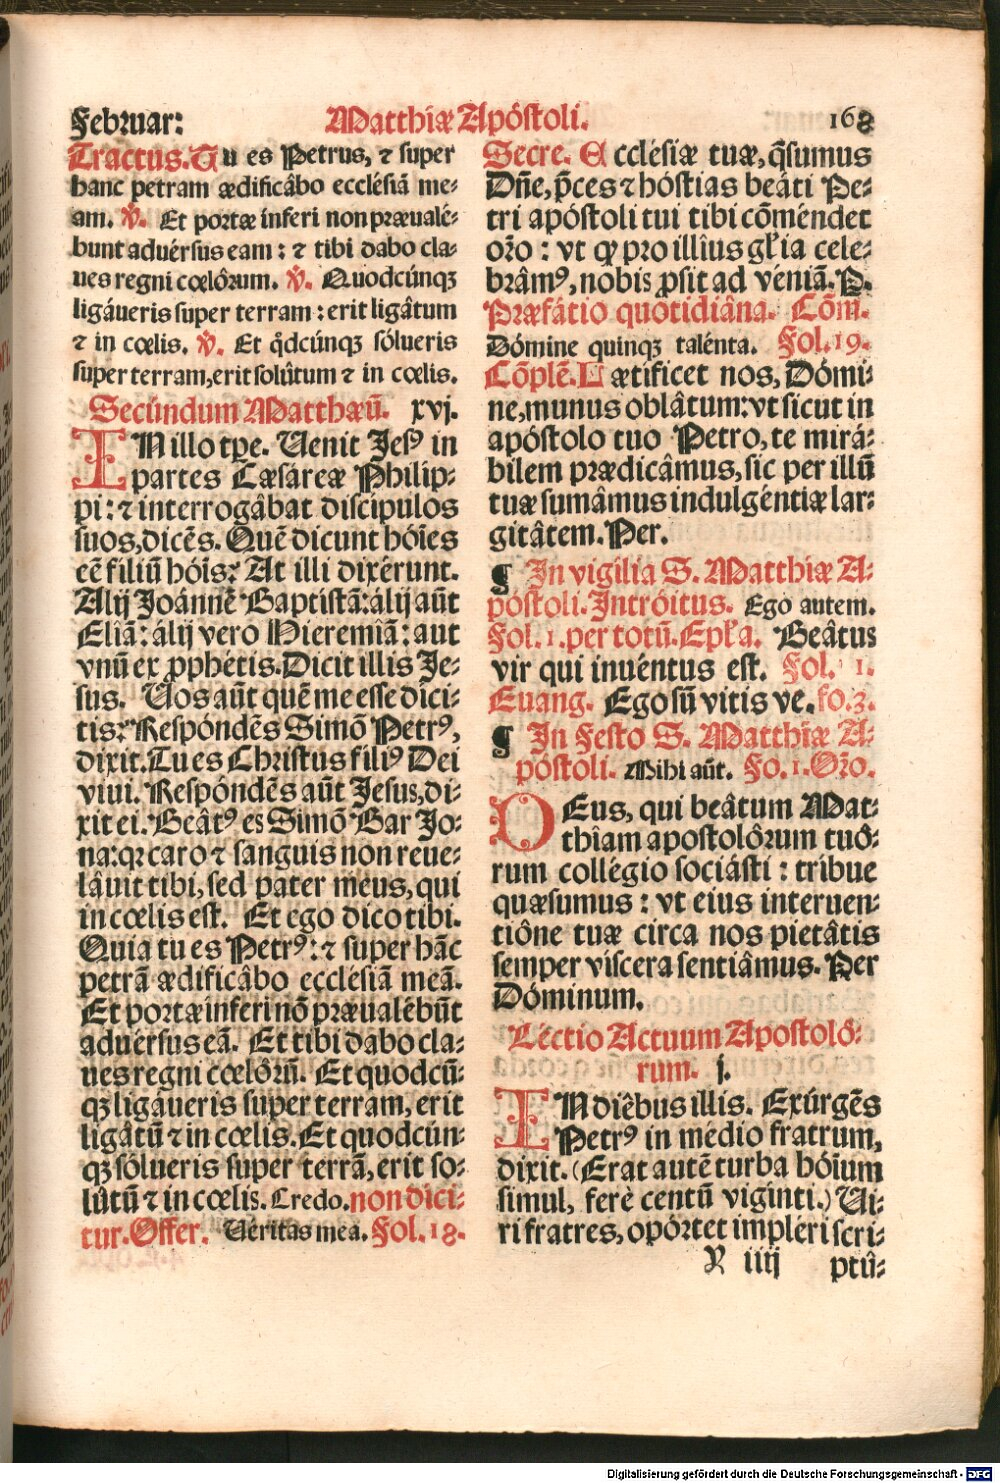 Februar: Matthiæ Apóstoli. 168
Tractus. Tu es Petrus, ⁊ super
hanc petram ædificâbo ecclésiã me-
am. ℣. Et portæ inferi non præualé-
bunt aduérsus eam: ⁊ tibi dabo cla-
ues regni cœlôrum. ℣. Quodcúnqꝫ
ligáueris super terram: erit ligâtum
⁊ in cœlis. ℣. Et q̃dcúnqꝫ sólueris
super terram, erit solûtum ⁊ in cœlis.
Secúndum Matthæũ. xvj.
IN illo tp̃e. Uenit Jesꝰ in
partes Cæsáreæ Philip-
pi: ⁊ interrogâbat discípulos
suos, dicẽs. Quẽ dicunt hóĩes
eẽ filiũ hóĩs? At illi dixérunt.
Alij Joánnẽ Baptistã: álij aũt
Eliã: álij vero Hieremîã: aut
vnũ ex ꝓphétis. Dicit illis Je-
sus. Uos aũt quẽ me esse dici-
tis? Respóndẽs Simõ Petrꝰ,
dixit. Tu es Christus filiꝰ Dei
viui. Respóndẽs aũt Jesus, di-
xit ei. Beâtꝰ es Simõ Bar Jo-
na: qꝛ caro ⁊ sanguis non reue-
lâuit tibi, sed pater meus, qui
in cœlis est. Et ego dico tibi.
Quia tu es Petrꝰ: ⁊ super hãc
petrã ædificâbo ecclésiã meã.
Et portæ inferi nõ præualébũt
aduérsus eã. Et tibi dabo cla-
ues regni cœlôrũ. Et quodcũ-
qꝫ ligáueris super terram, erit
ligâtũ ⁊ in cœlis. Et quodcún-
qꝫ sólueris super terrã, erit so-
lûtũ ⁊ in cœlis. Credo. non dici-
tur. Offer. Uéritas mea. Fol. 18.
Secre. Ecclésiæ tuæ, q̃sumus
Dñe, p̃ces ⁊ hóstias beáti Pe-
tri apóstoli tui tibi cõméndet
orõ: vt qđ pro illîus gľia cele-
brâmꝰ, nobis ꝓsit ad véniã. P.
Præfátio quotidiâna. Cõm.
Dómine quinqꝫ talénta. Fol. 19.
Cõplẽ. Lætíficet nos, Dómi-
ne, munus oblâtum: vt sicut in
apóstolo tuo Petro, te mirá-
bilem prædicâmus, sic per illũ
tuæ sumâmus indulgéntiæ lar-
gitâtem. Per.
¶ In vigília S. Matthiæ A-
póstoli. Intróitus. Ego autem.
Fol. 1. per totũ. Epľa. Beâtus
vir qui inuéntus est. Fol. 1.
Euang. Ego sũ vitis ve. fo. 3.
¶ In Festo S. Matthiæ A-
póstoli. Mihi aũt. Fo. 1. Orõ.
DEus, qui beâtum Mat-
thîam apostolôrum tuô-
rum collégio sociásti: tríbue
quæsumus: vt eius interuen-
tiône tuæ circa nos pietâtis
semper víscera sentiâmus. Per
Dóminum.
Léctio Actuum Apostolô-
rum. j.
IN diêbus illis. Exúrgẽs
Petrꝰ in médio fratrum,
dixit. (Erat autẽ turba hóĩum
simul, ferè centũ viginti.) Ui-
ri fratres, opórtet impléri scri-
Y iiij ptû-
Digitalisierung gefördert durch die Deutsche Forschungsgemeinschaft - DFG